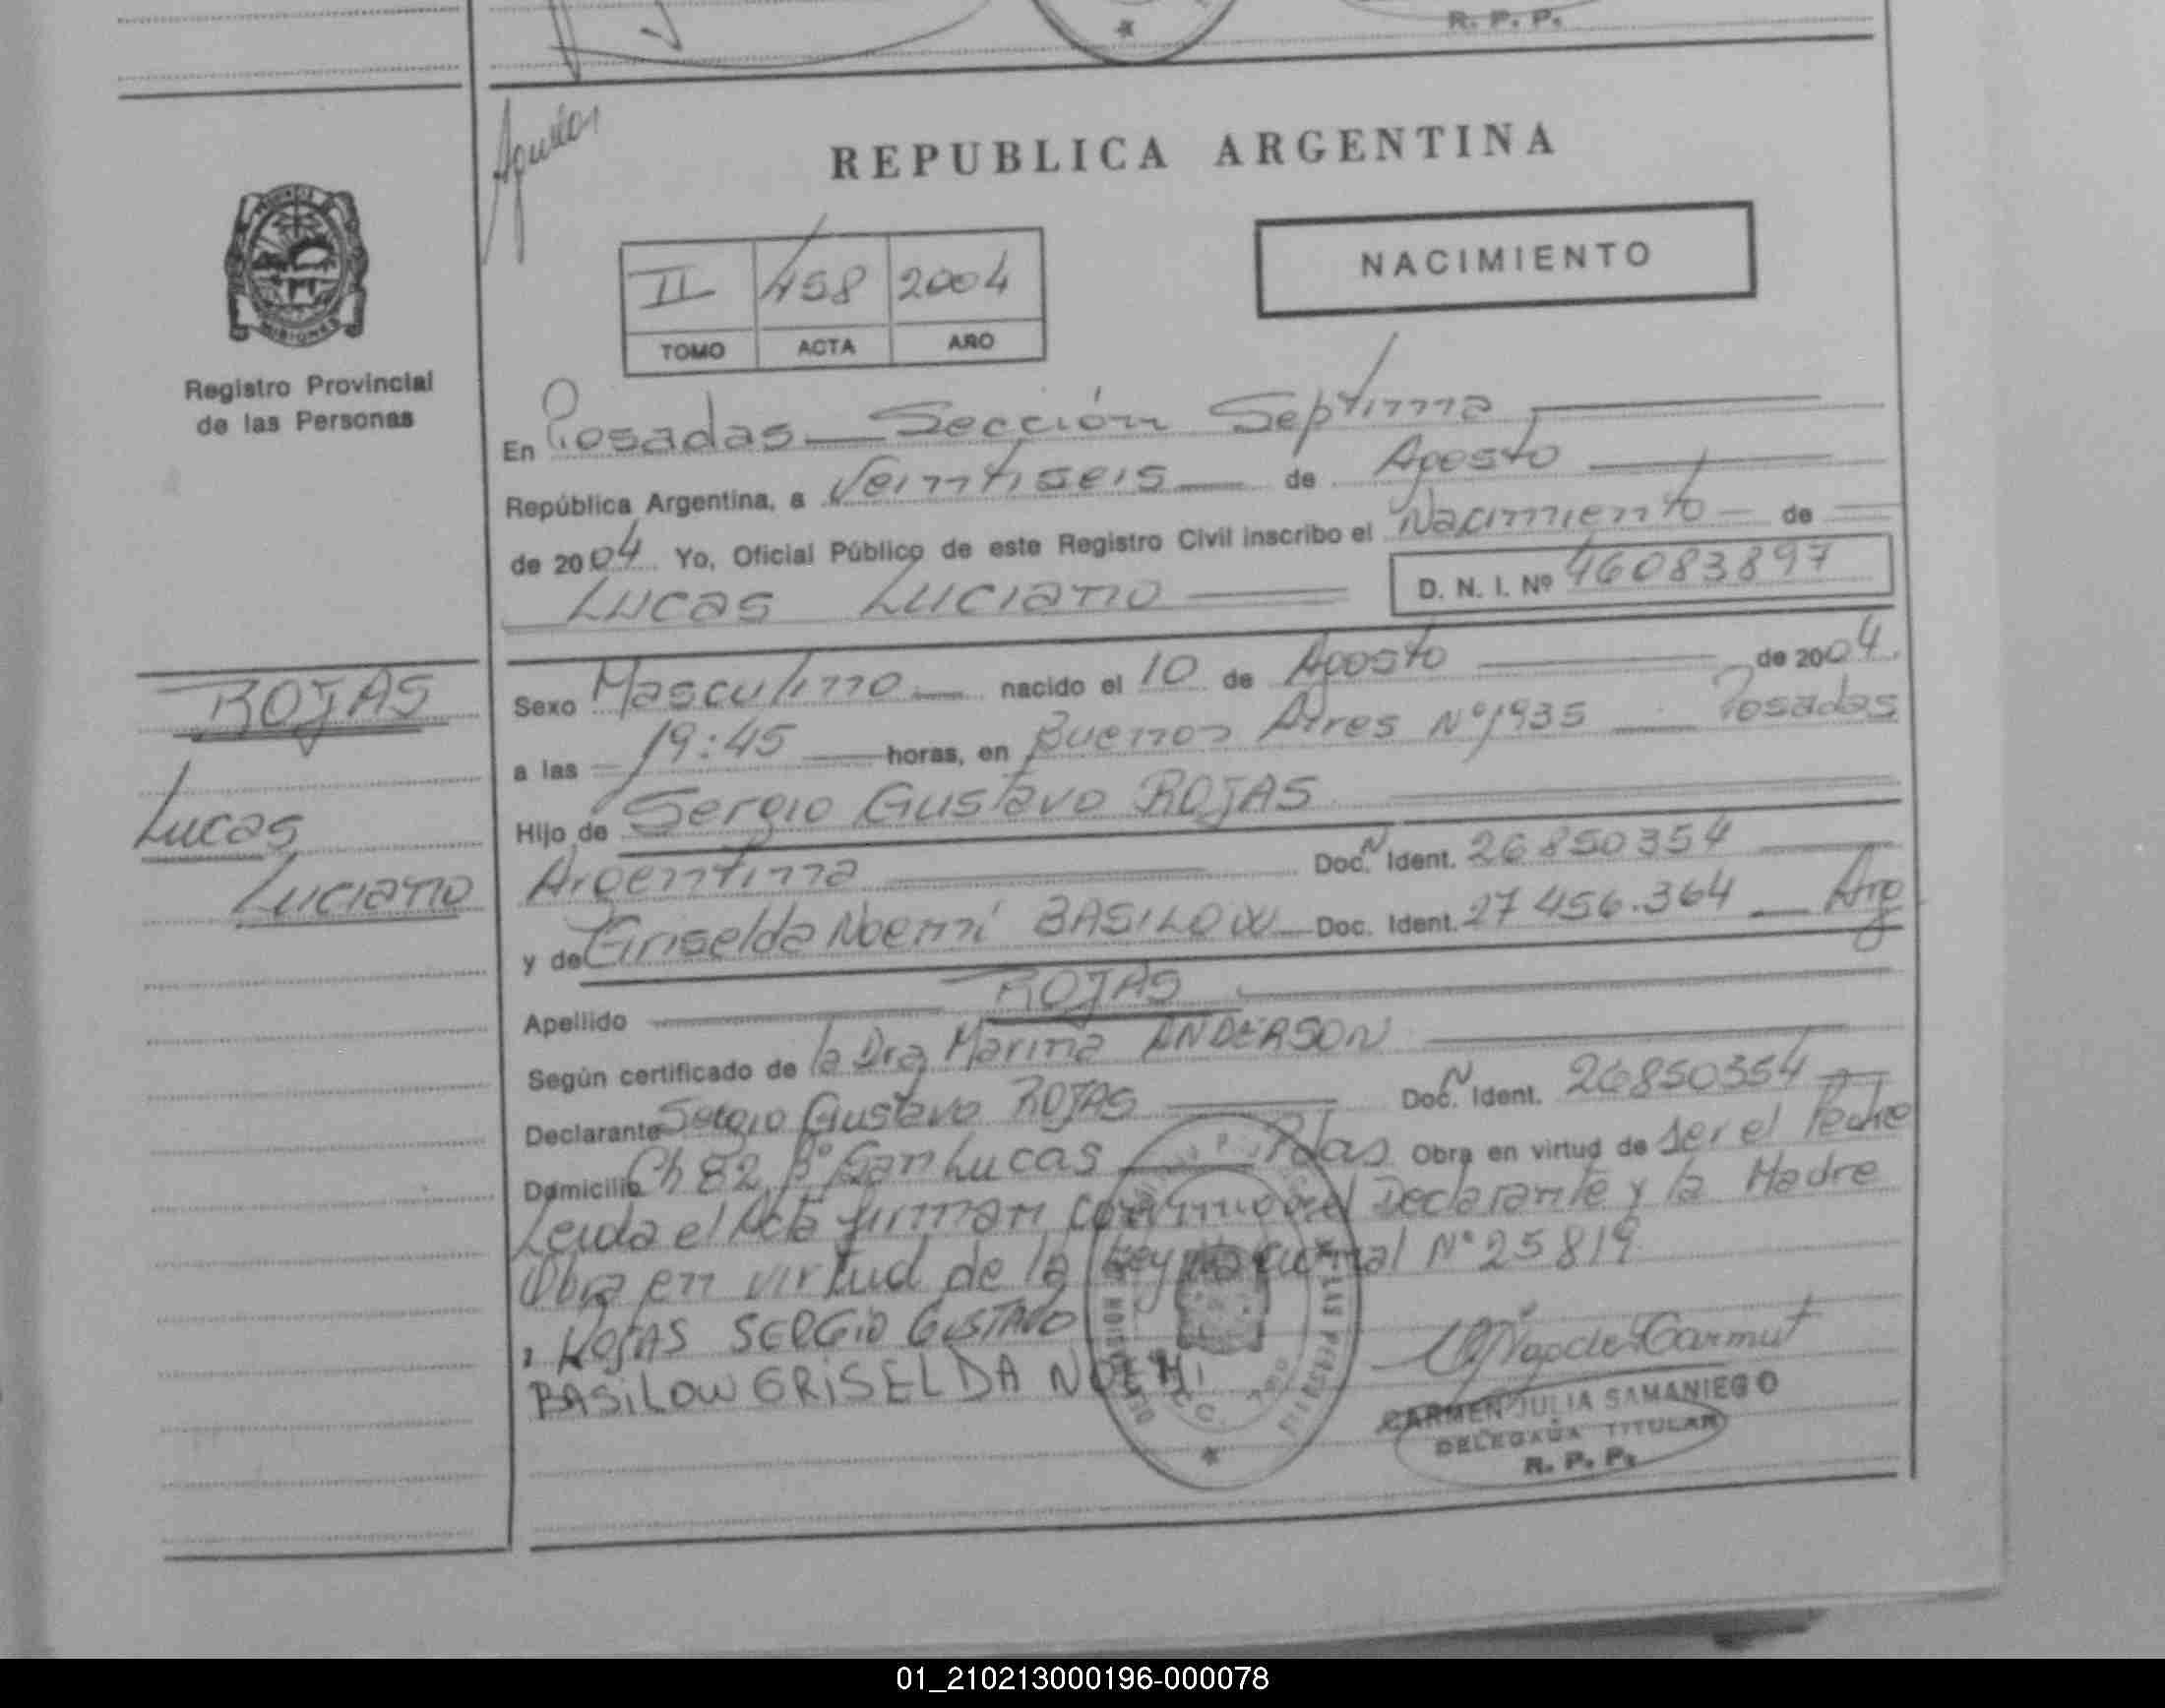 R. P. P.
Aguilar
REPUBLICA ARGENTINA
NACIMIENTO
II 458 2004
TOMO ACTA AÑO
MISIONES
Registro Provincial
de las Personas
En Posadas Sección Septima
República Argentina, a Veintiseis de Agosto
de 2004 Yo, Oficial Público de este Registro Civil inscribo el Nacimiento de
Lucas Luciano D. N. I. Nº 46083897
ROJAS
Lucas
Luciano
Sexo Masculino nacido el 10 de Agosto de 2004
a las 19:45 horas, en Buenos Aires Nº 1935 Posadas
Hijo de Sergio Gustavo ROJAS
Argentina Doc. N Ident. 26850354
y de Griselda Noemí BASILOW Doc. Ident. 27456.364 Arg
Apellido ROJAS
Según certificado de la Dra Marina ANDERSON
Declarante Sergio Gustavo ROJAS Doc. N Ident. 26850354
Domicilio Ch 82 Bº San Lucas Pdas Obra en virtud de ser el Padre
Leida el Acta firman conmigo el Declarante y la Madre
Obra en virtud de la Ley Nacional Nº 25819
ROJAS SERGIO GUSTAVO
BASILOW GRISELDA NOEMI
CARMEN JULIA SAMANIEGO
DELEGADA TITULAR
R. P. P.
01_210213000196-000078